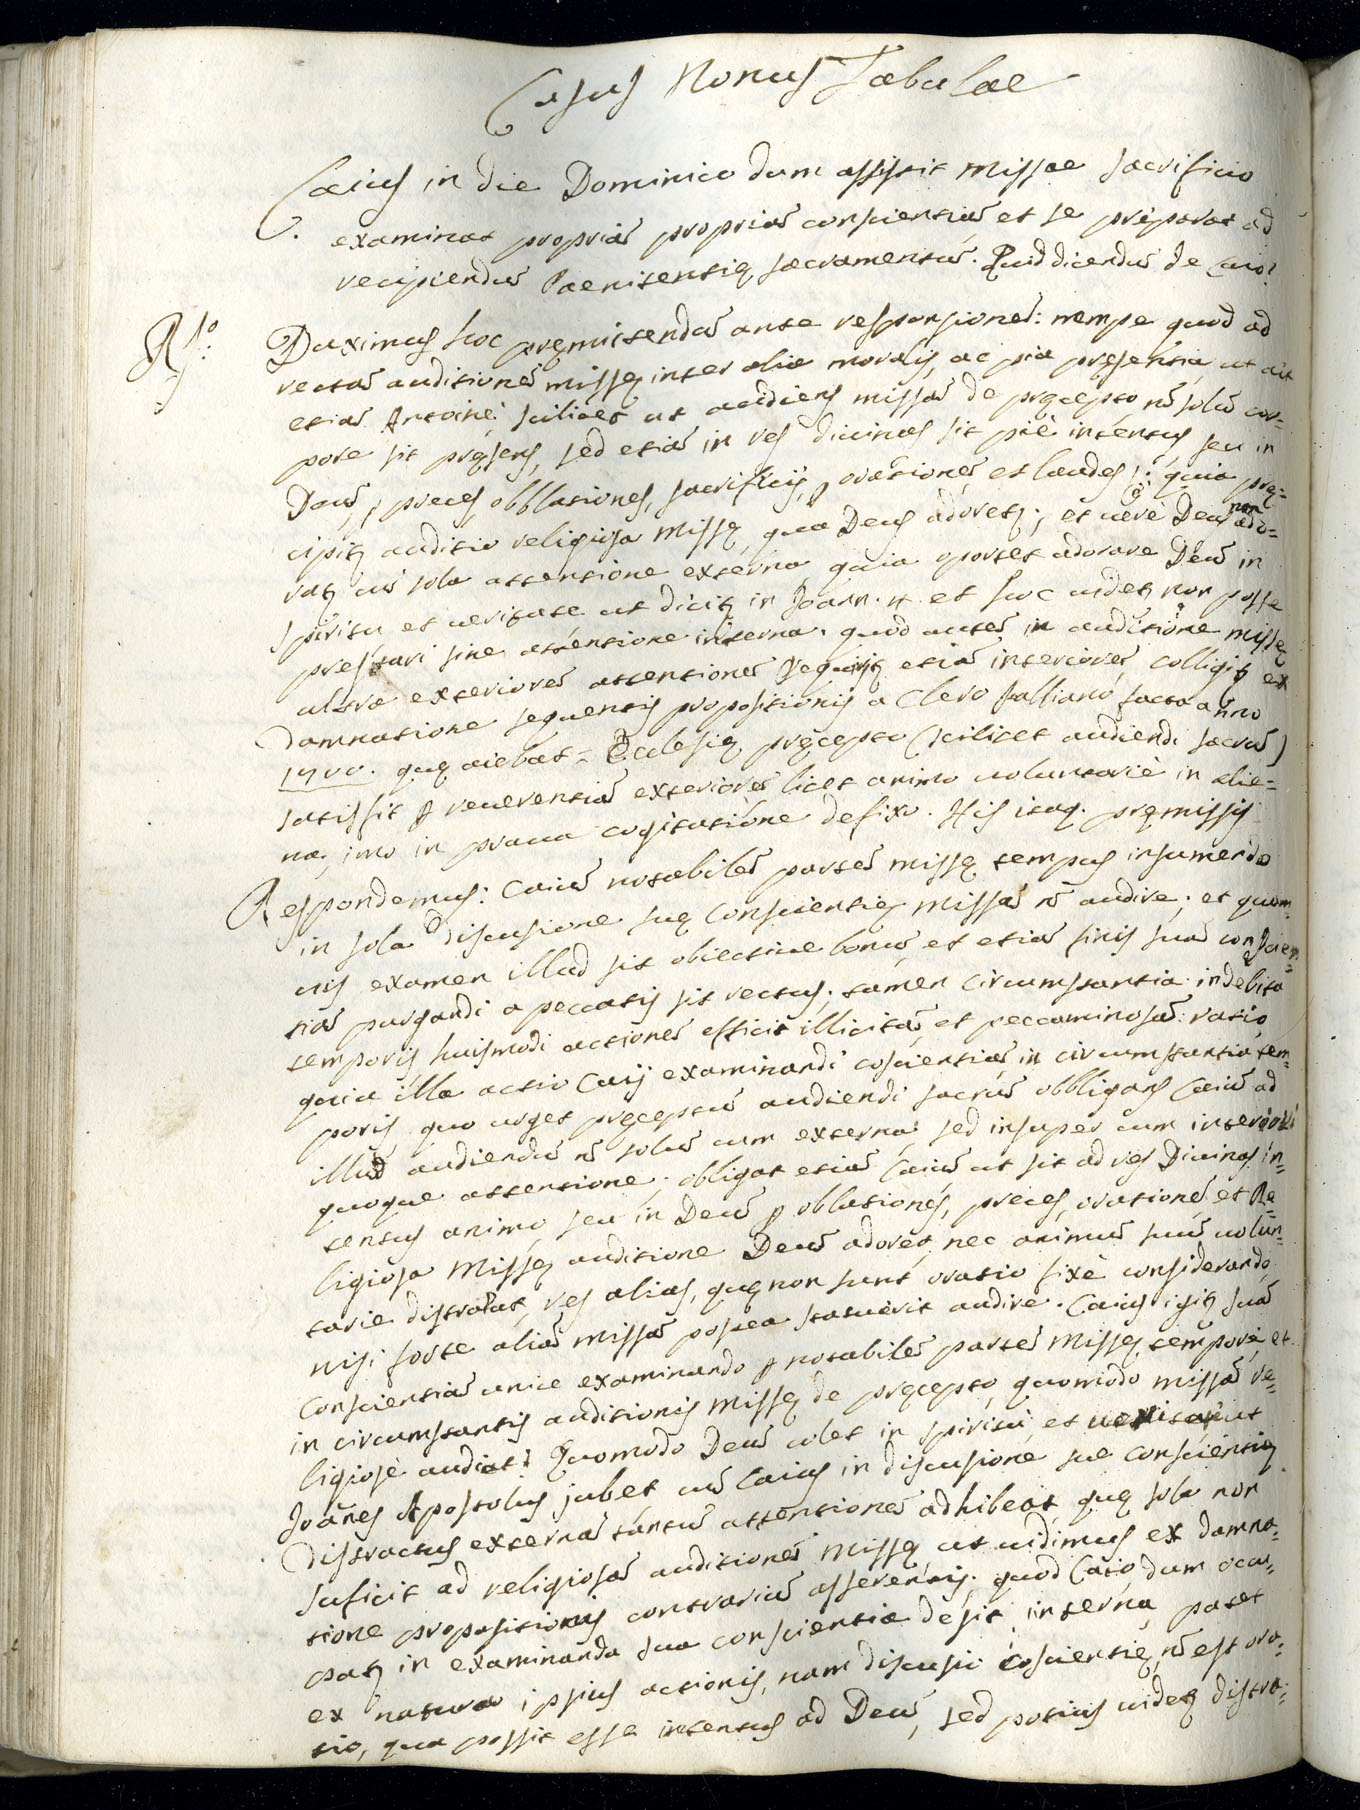 Casus Nonus Tabulae
Caius in die Dominico dum assistit Missae sacrificio
examinat propriā propriā conscientiā et se preparat ad
recipiendū Paenitentię sacramentū. Quid dicendū de Caio?
R.º Duximus hoc pręmittendū ante responsionē: nempe quod ad
rectā auditionē missę inter alia moralis, ac pia pręsentia, ut ait
etiā Antoine: scilicet ut audiens missā de pręcepto nō solū cor=
pore sit pręsens, sed etiā in res divinas sit piè intentus, seu in
Deū, p preces, obblationes, sacrificij, orationes et laudes: quia pręː=
cipitʒ auditio religiosa Missę, qua Deus adoretʒ; et verè Deus non ado=
ratʒ cū sola attentione externa, quia oportet adorare Deū in
spiritu et veritate ut dicitʒ in Joann. 4. et hoc videtʒ non posse
prestari sine attentione interna. quod autē in auditione missę
ultra exteriorē attentionē requiritʒ etiā interiorē, colligitʒ ex
damnatione sequentis propositionis a Clero Galliano facta anno
1700. quę aiebat = Ecclesię pręcepto (scilicet audiendi sacrū)
satisfit p reverentiā exteriorē licet animo voluntariè in alie=
na, imo in prava cogitatione defixo. His itaq. pręmissis
Respondemus: Caiū notabilē partē missę tempus insumendo
in sola discusione suę Conscientię Missā nō audire; et quam=
vis examen illud sit obiective bonū, et etiā finis suā conscien=
tiā purgandi a peccatis sit rectus; tamen circumstantia indebita
temporis huismodi actionē efficit illicitā, et peccaminosā: ratio
quia illa actio Caij examinandi cōscientiā in circumstantia tem=
poris, quo urget pręceptū audiendi sacrū obbligans Caiū ad
illud audiendū nō solū cum externa, sed insuper cum interiori
quoque attentione; obligat etiā Caiū ut sit ad res Divinas in=
tentus animo, seu in Deū p oblationes, preces, orationē, et Re=
ligiosa Missę auditione Deū adoret, nec animū suū volun=
tarie distrahat, res alias, quę non sunt oratio fixè considerando,
nisi forte aliā missā postea statuerit audire. Caius igitʒ suā
Conscientiā unice examinando p notabilē partē Missę tempore, et
in circumstantiis auditionis Missę de pręcepto, quomodo missā re=
ligiosè audiat? Quomodo Deū colet in spiritu, et veritate ut
Joānes Apostolus jubet cū Caius in discusione suę conscientię
distractus externā tantū attentionē adhibeat, quę sola non
suficit ad religiosā auditionē Missę, ut vidimus ex damna=
tione propositionis contrariū asserentis; quod Caio, dum occu=
patʒ in examinanda sua conscientia desit interna, patet
ex natura ipsius actionis, nam discusio cōscientię, nō est ora=
tio, qua possit esse intentus ad Deū, sed potius videtʒ distra=